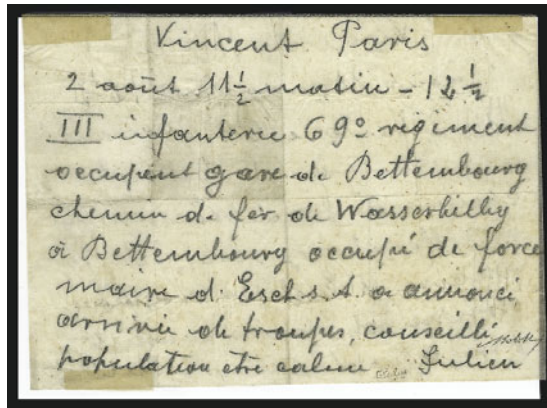 Vincent Paris
2 août 11½ matin - 12½
III infanterie 69º régiment
occupent gare de Bettembourg
chemin de fer de Wasserbillig
à Bettembourg occupé de force
maire d'Esch s. A. a annoncé
arrivée de troupes, conseillé
population être calme Julien